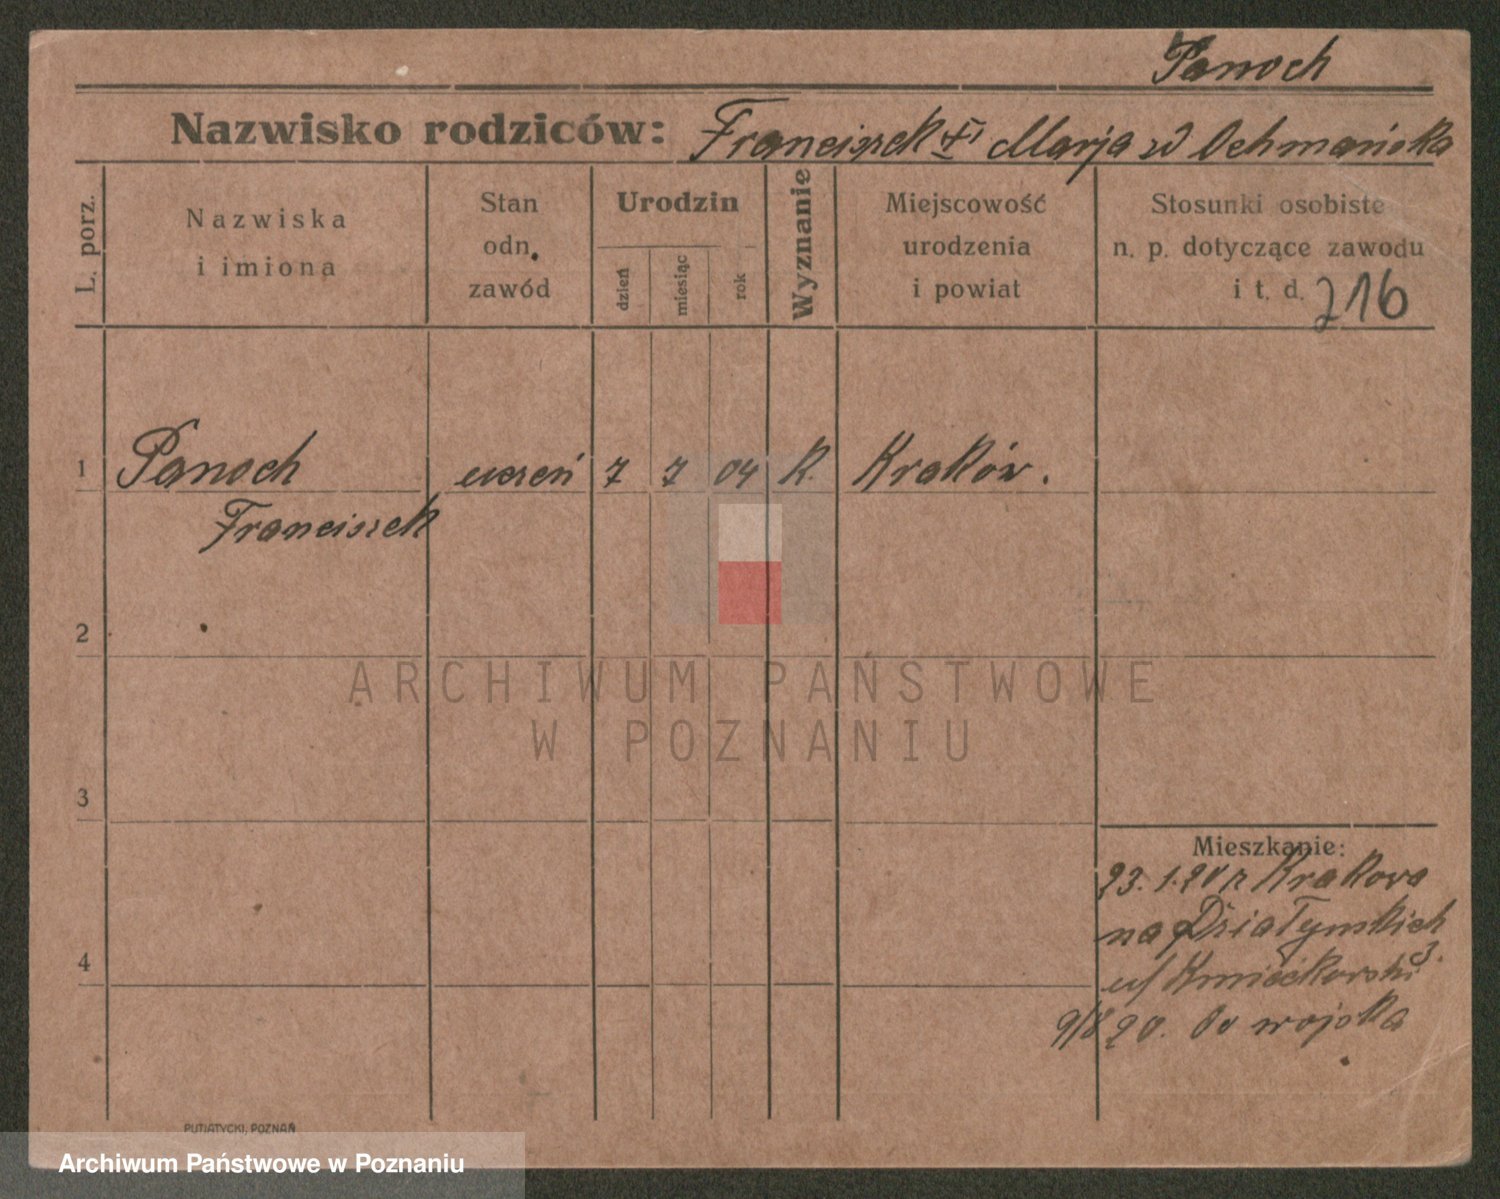 Panoch
Nazwisko rodziców: Franciszek i Marja
L. porz.
Nazwiska
i imiona
Stan
odn.
zawód
Urodzin
dzień
miesiąc
rok
Wyznanie
Miejscowość
urodzenia
i powiat
Stosunki osobiste
n. p. dotyczące zawodu
i t. d. 216
1 Panoch uczeń 7 7 04 K. Kraków.
Franciszek
2
ARCHIWUM PAŃSTWOWE
W POZNANIU
3
Mieszkanie:
23.1.20 z Krakowa
na Działyńskich 3.
4
9/8 20. Do wojska
PUTIATYCKI, POZNAŃ
Archiwum Państwowe w Poznaniu